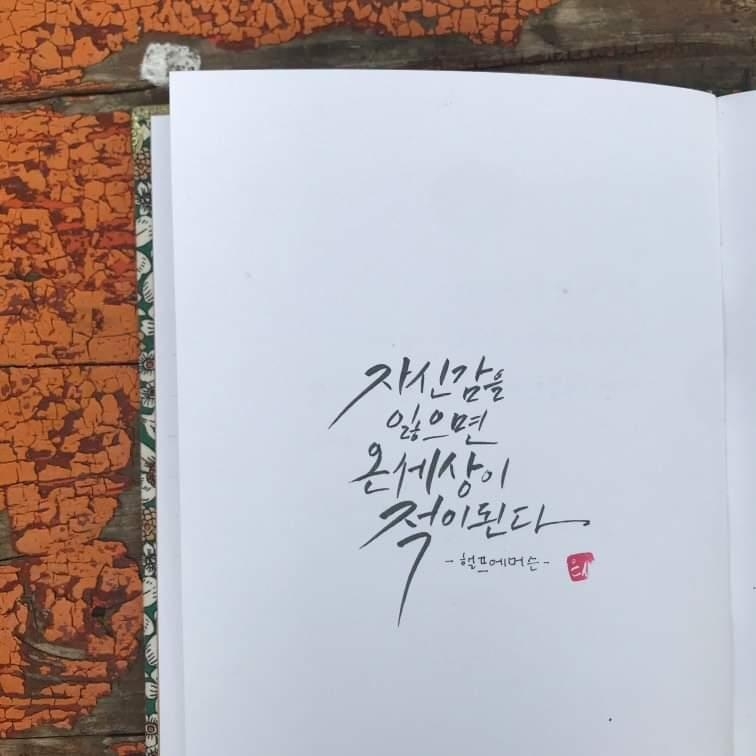 자신감을
잃으면
온세상이
적이된다
-헬프에머슨-